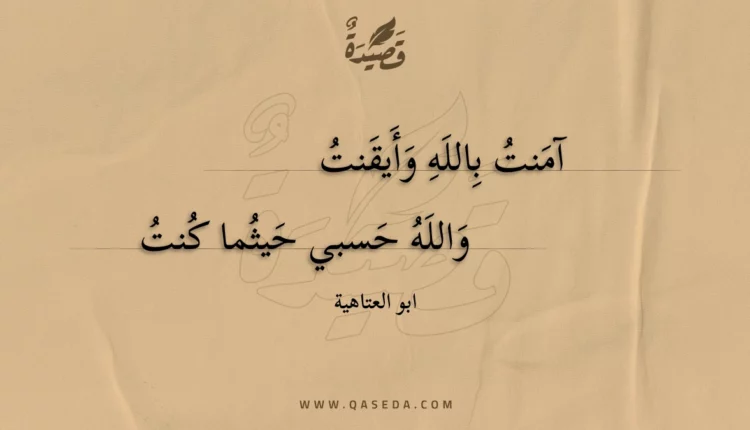 قَصِيدَةٌ
آمَنتُ بِاللَهِ وَأَيقَنتُ
وَاللَهُ حَسبي حَيثُما كُنتُ
ابو العتاهية
WWW.QASEDA.COM